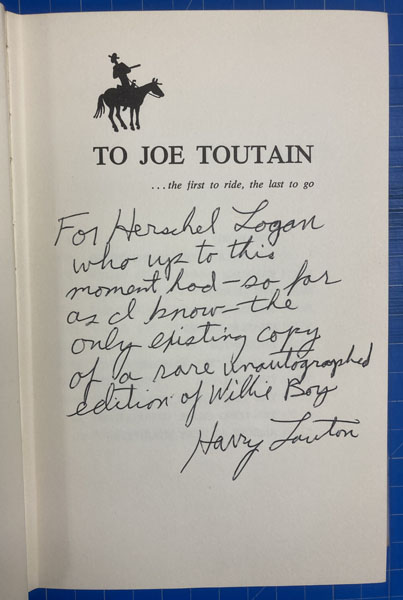 TO JOE TOUTAIN
...the first to ride, the last to go
For Herschel Logan
who up to this
moment had—so far
as I know—the
only existing copy
of a rare unautographed
edition of Willie Boy
Harry Lawton